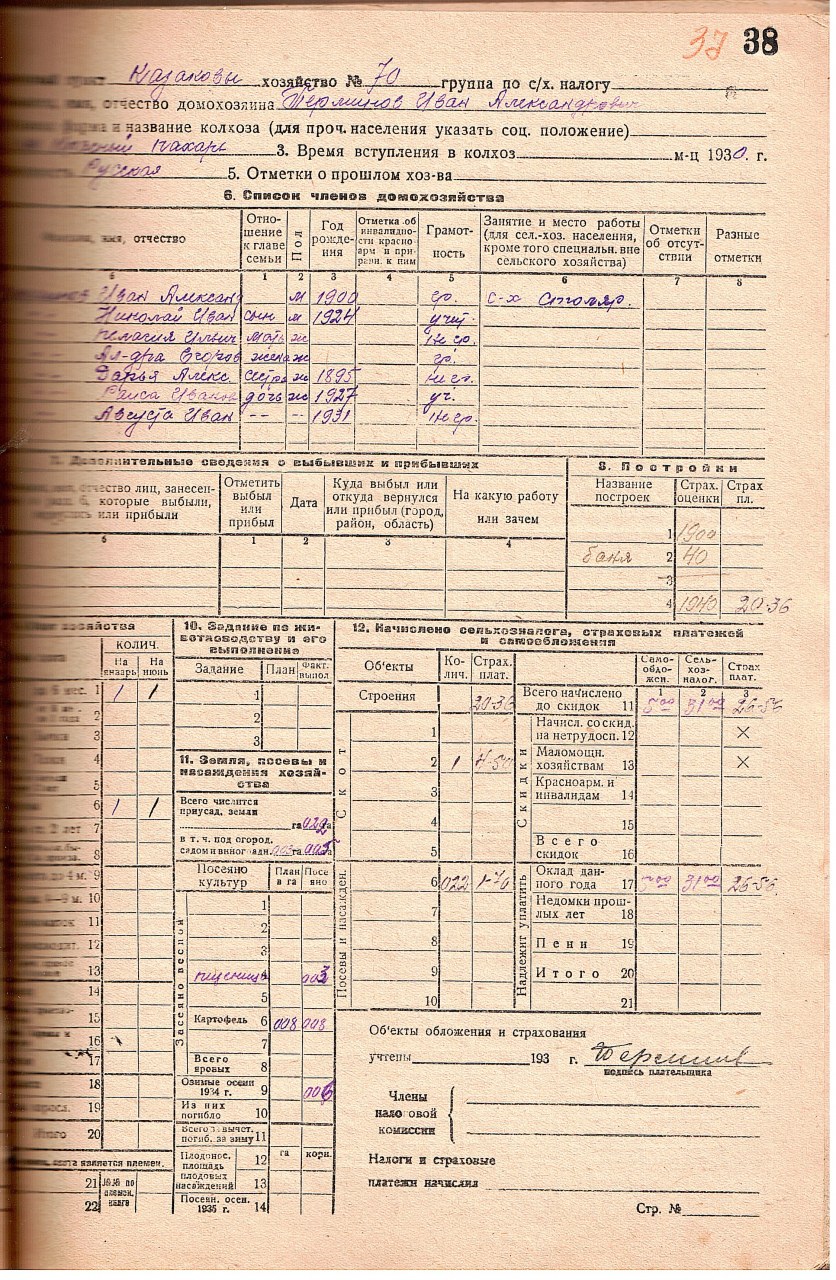 37 38
пункт Казаковы хозяйство № 70 группа по с/х. налогу
имя, отчество домохозяина Терминов Иван Александрович
и название колхоза (для проч. населения указать соц. положение)
пахарь 3. Время вступления в колхоз м-ц 1930. г.
Русская 5. Отметки о прошлом хоз-ва
6. Список членов домохозяйства
имя, отчество Отно-шение к главе семьи Пол Год рожде-ния Отметка об инвалидно-сти красно-арм и при-равн. к ним Грамот-ность Занятие и место работы (для сел.-хоз. населения, кроме того специальн. вне сельского хозяйства) Отметки об отсут-ствии Разные отметки
б 1 2 3 4 5 6 7 8
Иван Александ м 1900 гр. с-х столяр.
Николай Иван сын м 1924 учит.
Пелагия Ильин мать ж н гр.
Ал-дра Егоров жена ж гр.
Дарья Алекс. сестра ж 1895 н гр.
Раиса Иванов дочь ж 1927 уч.
Августа Иван -- -- 1931 н гр.
7. Дополнительные сведения о выбывших и прибывших
8. Постройки
отчество лиц, занесен- 6, которые выбыли, или прибыли Отметить выбыл или прибыл Дата Куда выбыл или откуда вернулся или прибыл (город, район, область) На какую работу или зачем
б 1 2 3 4
Название построек Страх. оценки Страх пл.
1 1900
баня 2 40
3
4 1940 20-36
хозяйства
КОЛИЧ.
На январь На июнь
1 1 1
2
3
4
5
6 1 1
2 лет 7
8
до 4 м. 9
10
11
12
13
14
15
16
17
18
19
Итого 20
скота является племен.
21 №№ по племен. книге
22
10. Задание по жи-вотноводству и его выполнение
Задание План Факт. выпол.
1
2
3
11. Земля, посевы и насаждения хозяй-ства
Всего числится приусад. земли
га 022
в т. ч. под огород.
Посеяно культур План в га Посеяно
Засеяно весной
1
2
3
пшеница 4 003
5
Картофель 6 008 008
7
Всего яровых 8
Озимые осени 1934 г. 9 006
Из них погибло 10
Всего 1. вычет. погиб. за зиму 11
Плодонос. площадь плодовых насаждений га корн.
12
13
Посеян. осен. 1935 г. 14
12. Начислено сельхозналога, страховых платежей и самообложения
Объекты Ко-лич. Страх. плат.
Строения 20-36
Скот
1
2 1 4-50
3
4
5
Посевы и насажден.
6 022 1-70
7
8
9
10
Само-обло-жен. Сель-хоз-налог. Страх плат.
1 2 3
Всего начислено до скидок 11 5 00 31 00 26-56
Скидки
Начисл. со скид. на нетрудосп. 12 ×
Маломощн. хозяйствам 13 ×
Красноарм. и инвалидам 14
15
Всего скидок 16
Надлежит уплатить
Оклад дан-ного года 17 5 00 31 00 26-56
Недоимки прош-лых лет 18
Пени 19
Итого 20
21
Объекты обложения и страхования
учтены 193 г.
подпись плательщика
Члены налоговой комиссии
Налоги и страховые
платежи начислил
Стр. №